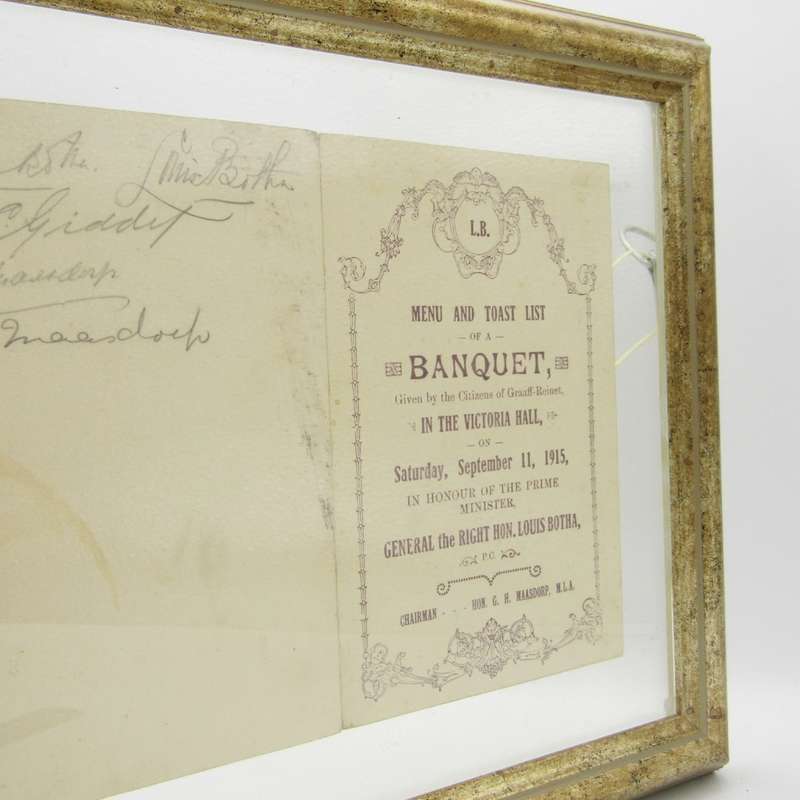 Botha. Louis Botha
Giddy
Maasdorp
Maasdorp
L.B.
MENU AND TOAST LIST
— OF A —
BANQUET,
Given by the Citizens of Graaff-Reinet,
IN THE VICTORIA HALL,
— ON —
Saturday, September 11, 1915,
IN HONOUR OF THE PRIME
MINISTER,
GENERAL the RIGHT HON. LOUIS BOTHA,
P.C.
CHAIRMAN - - - HON. G. H. MAASDORP, M.L.A.